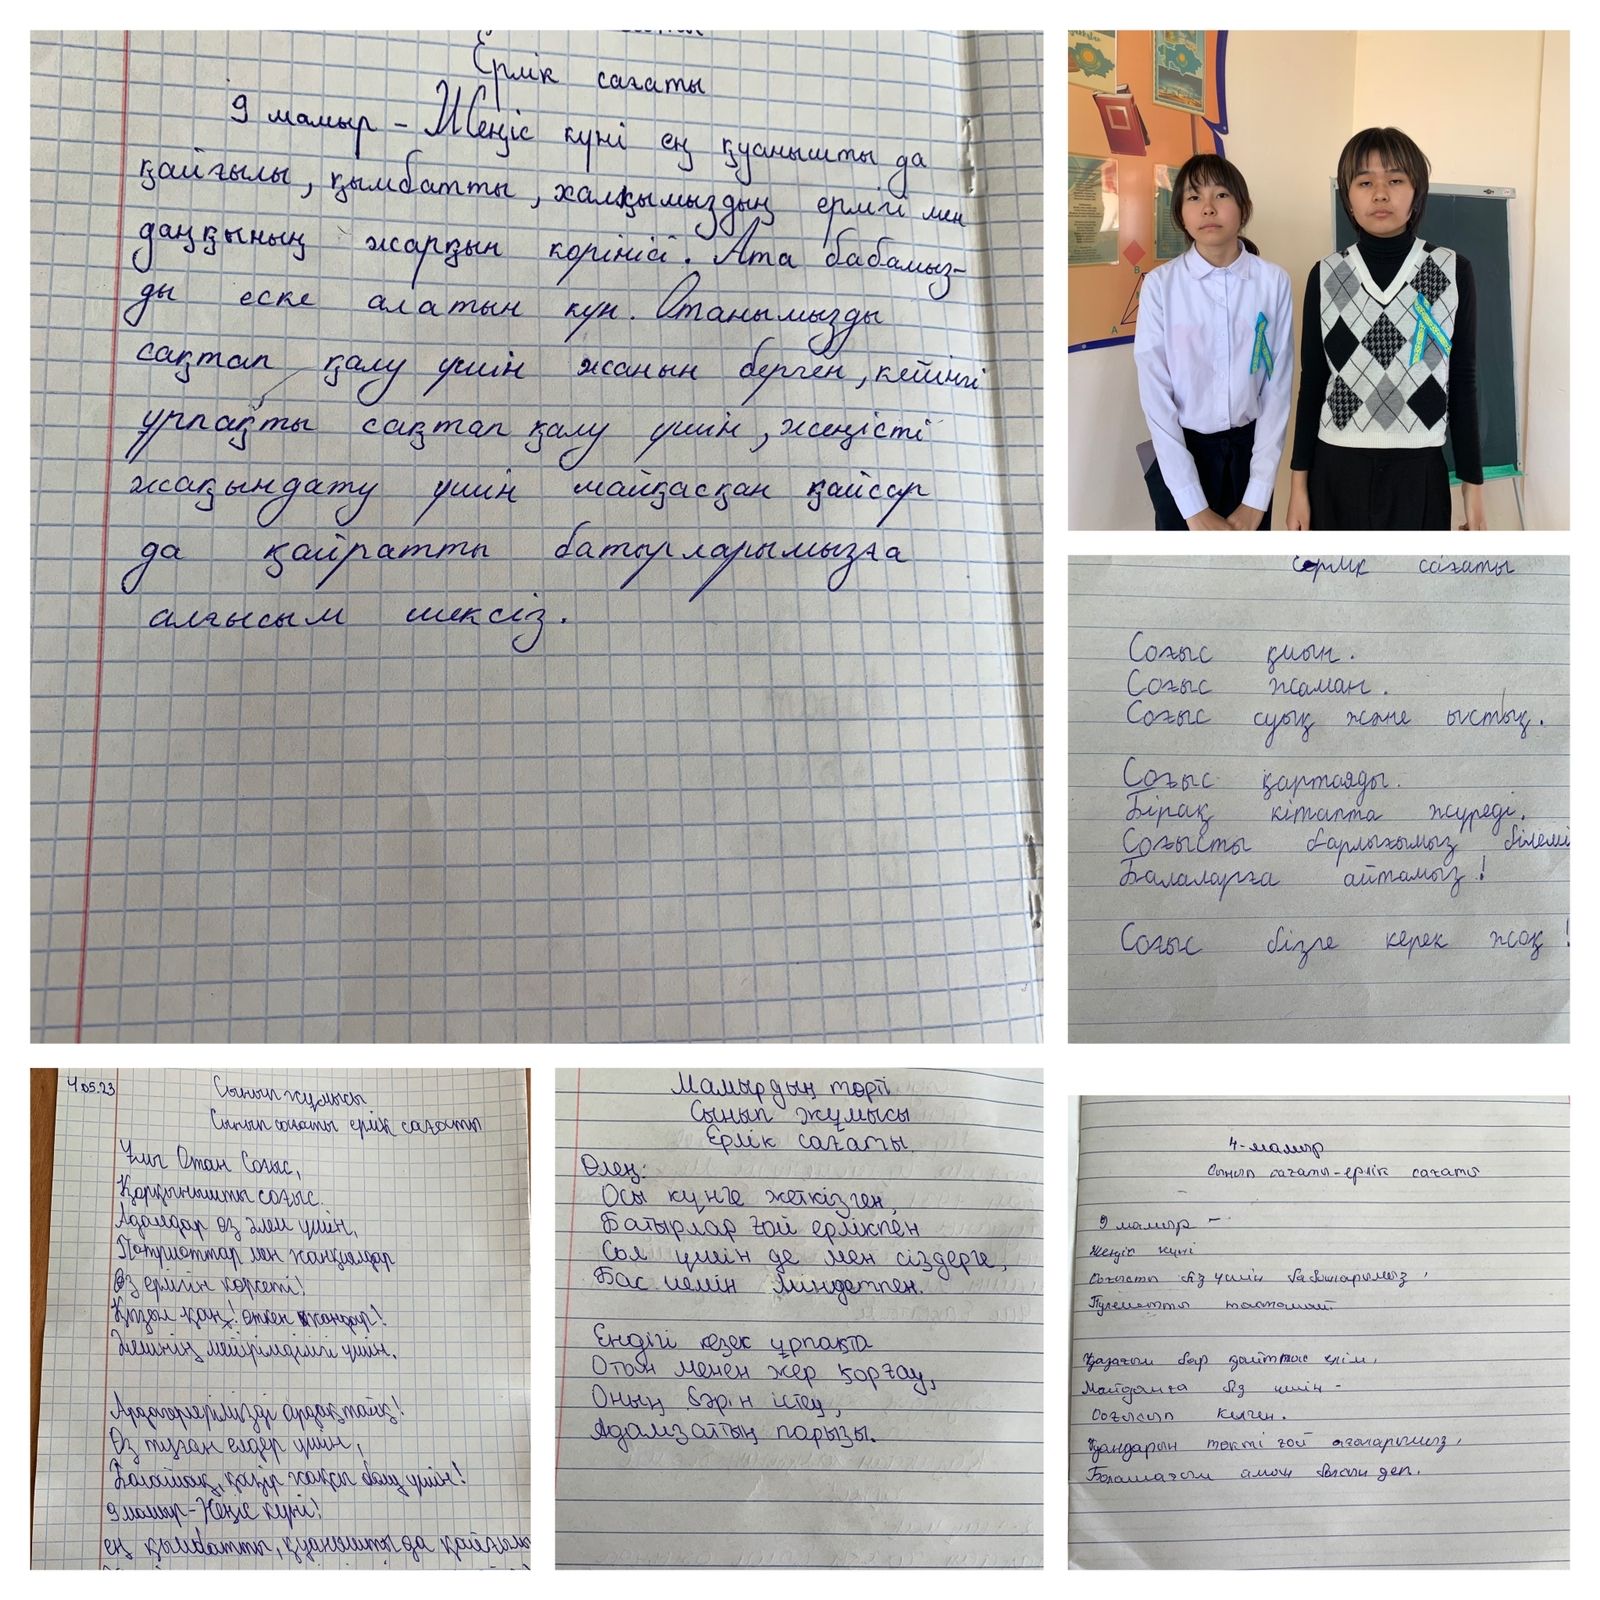 Ерлік сағаты
9 мамыр - Жеңіс күні ең қуанышты да
қайғылы, қымбатты, халқымыздың ерлігі мен
даңқының жарқын көрінісі. Ата бабамыз-
ды еске алатын күн. Отанымызды
сақтап қалу үшін жанын берген, кейінгі
ұрпақты сақтап қалу үшін, жеңісті
жақындату үшін майқасқан қайсар
да қайратты батырларымызға
алғысым шексіз.
В
А
ерлік сағаты
Соғыс қиын.
Соғыс жаман.
Соғыс суық және ыстық.
Соғыс қартаяды.
Бірақ кітапта жүреді.
Соғысты барлығымыз білемі
Балаларға айтамыз!
Соғыс бізге керек жоқ!
4.05.23
Сынып жұмысы
Сынып сағаты ерлік сағаты
Ұлы Отан Соғыс,
Қорқынышты соғыс.
Адамдар өз елі үшін,
Патриоттар мен жанқиялар
Өз ерлігін көрсетті!
Қызыл қан! өткен жандар!
мейірімділігі үшін.
Ардагерлерімізді ардақтайық!
Өз туған елдері үшін,
Болашақ, қазір жақсы болу үшін!
9 мамыр - Жеңіс күні!
ең қымбатты, қуанышты да қайғылы
Мамырдың төрті
Сынып жұмысы
Ерлік сағаты.
Өлең:
Осы күнге жеткізген,
Батырлар ғой ерлікпен
Сол үшін де мен сіздерге,
Бас иемін міндетпен.
Ендігі кезек ұрпақта
Отан менен жер қорғау,
Оның бәрін істеу,
Адамзаттың парызы.
4-мамыр
Сынып сағаты-ерлік сағаты
9 мамыр -
Жеңіс күні
Соғысты біз үшін бабаларымыз,
Пулеметті тастамай
Қазағым бар қайтпас ерім,
Майданға біз үшін -
Соғысып келген.
Қандарын төкті ғой ағаларымыз,
Болашағым аман болсын деп.